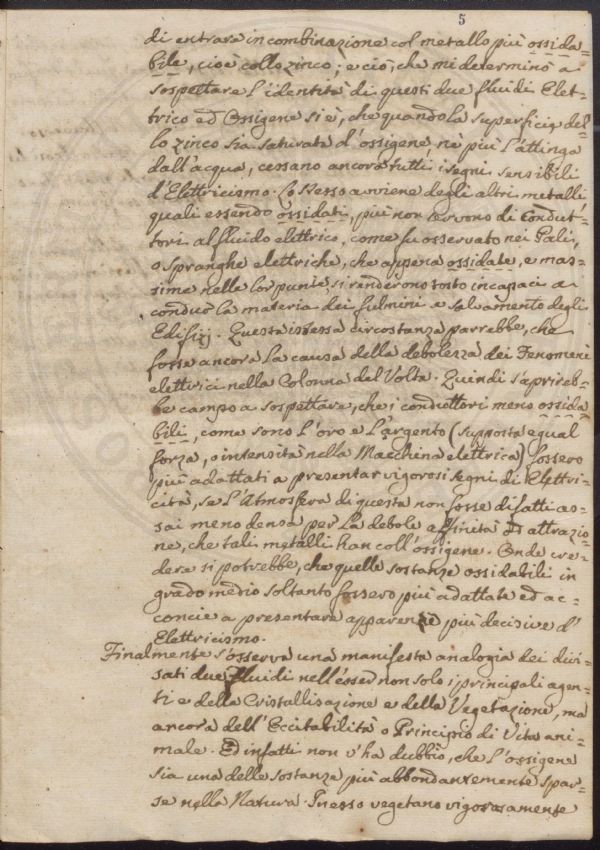 5
di entrare in combinazione col metallo più ossida=
bile, cioè collo zinco; e ciò, che mi determinò a
sospettare l'identità di questi due fluidi Elet=
trico ed Ossigene si è, che quando la superficie del=
lo zinco sia saturata d'ossigene, nè più l'attinga
dall'acqua, cessano ancora tutti i segni sensibili
d'Elettricismo. Lo stesso avviene degli altri metalli
quali essendo ossidati, più non servono di Condut=
tori al fluido elettrico, come fu osservato nei Pali,
o Spranghe elettriche, che appena ossidate, e mas=
sime nelle lor punte, si renderono tosto incapaci a
condur la materia dei fulmini a salvamento degli
Edifizj. Questa istessa circostanza parrebbe, che
fosse ancora la causa della debolezza dei Fenomeni
elettrici nella Colonna del Volta. Quindi s'aprireb=
be campo a sospettare, che i conduttori meno ossida
bili, come sono l'oro e l'argento (supposta egual
forza, o intensità nella Macchina elettrica) fossero
più adattati a presentar vigorosi segni di Elettri=
cità, se l'Atmosfera di questa non fosse difatti as=
sai meno densa per la debole affinità ed attrazio=
ne, che tali metalli han coll'ossigene. Onde cre=
dere si potrebbe, che quelle sostanze ossidabili in
grado medio soltanto fossero più adattate ed ac=
concie a presentare apparenze più decisive d'
Elettricismo.
Finalmente s'osserva una manifesta analogia dei divi=
sati due Fluidi nell'esser non solo i principali agen=
ti e della Cristallisazione e della Vegetazione, ma
ancora dell'Eccitabilità o Principio di Vita ani=
male. Ed infatti non v'ha dubbio, che l'ossigene
sia una delle sostanze più abbondantemente spar=
se nella Natura. In esso vegetano vigorosamente